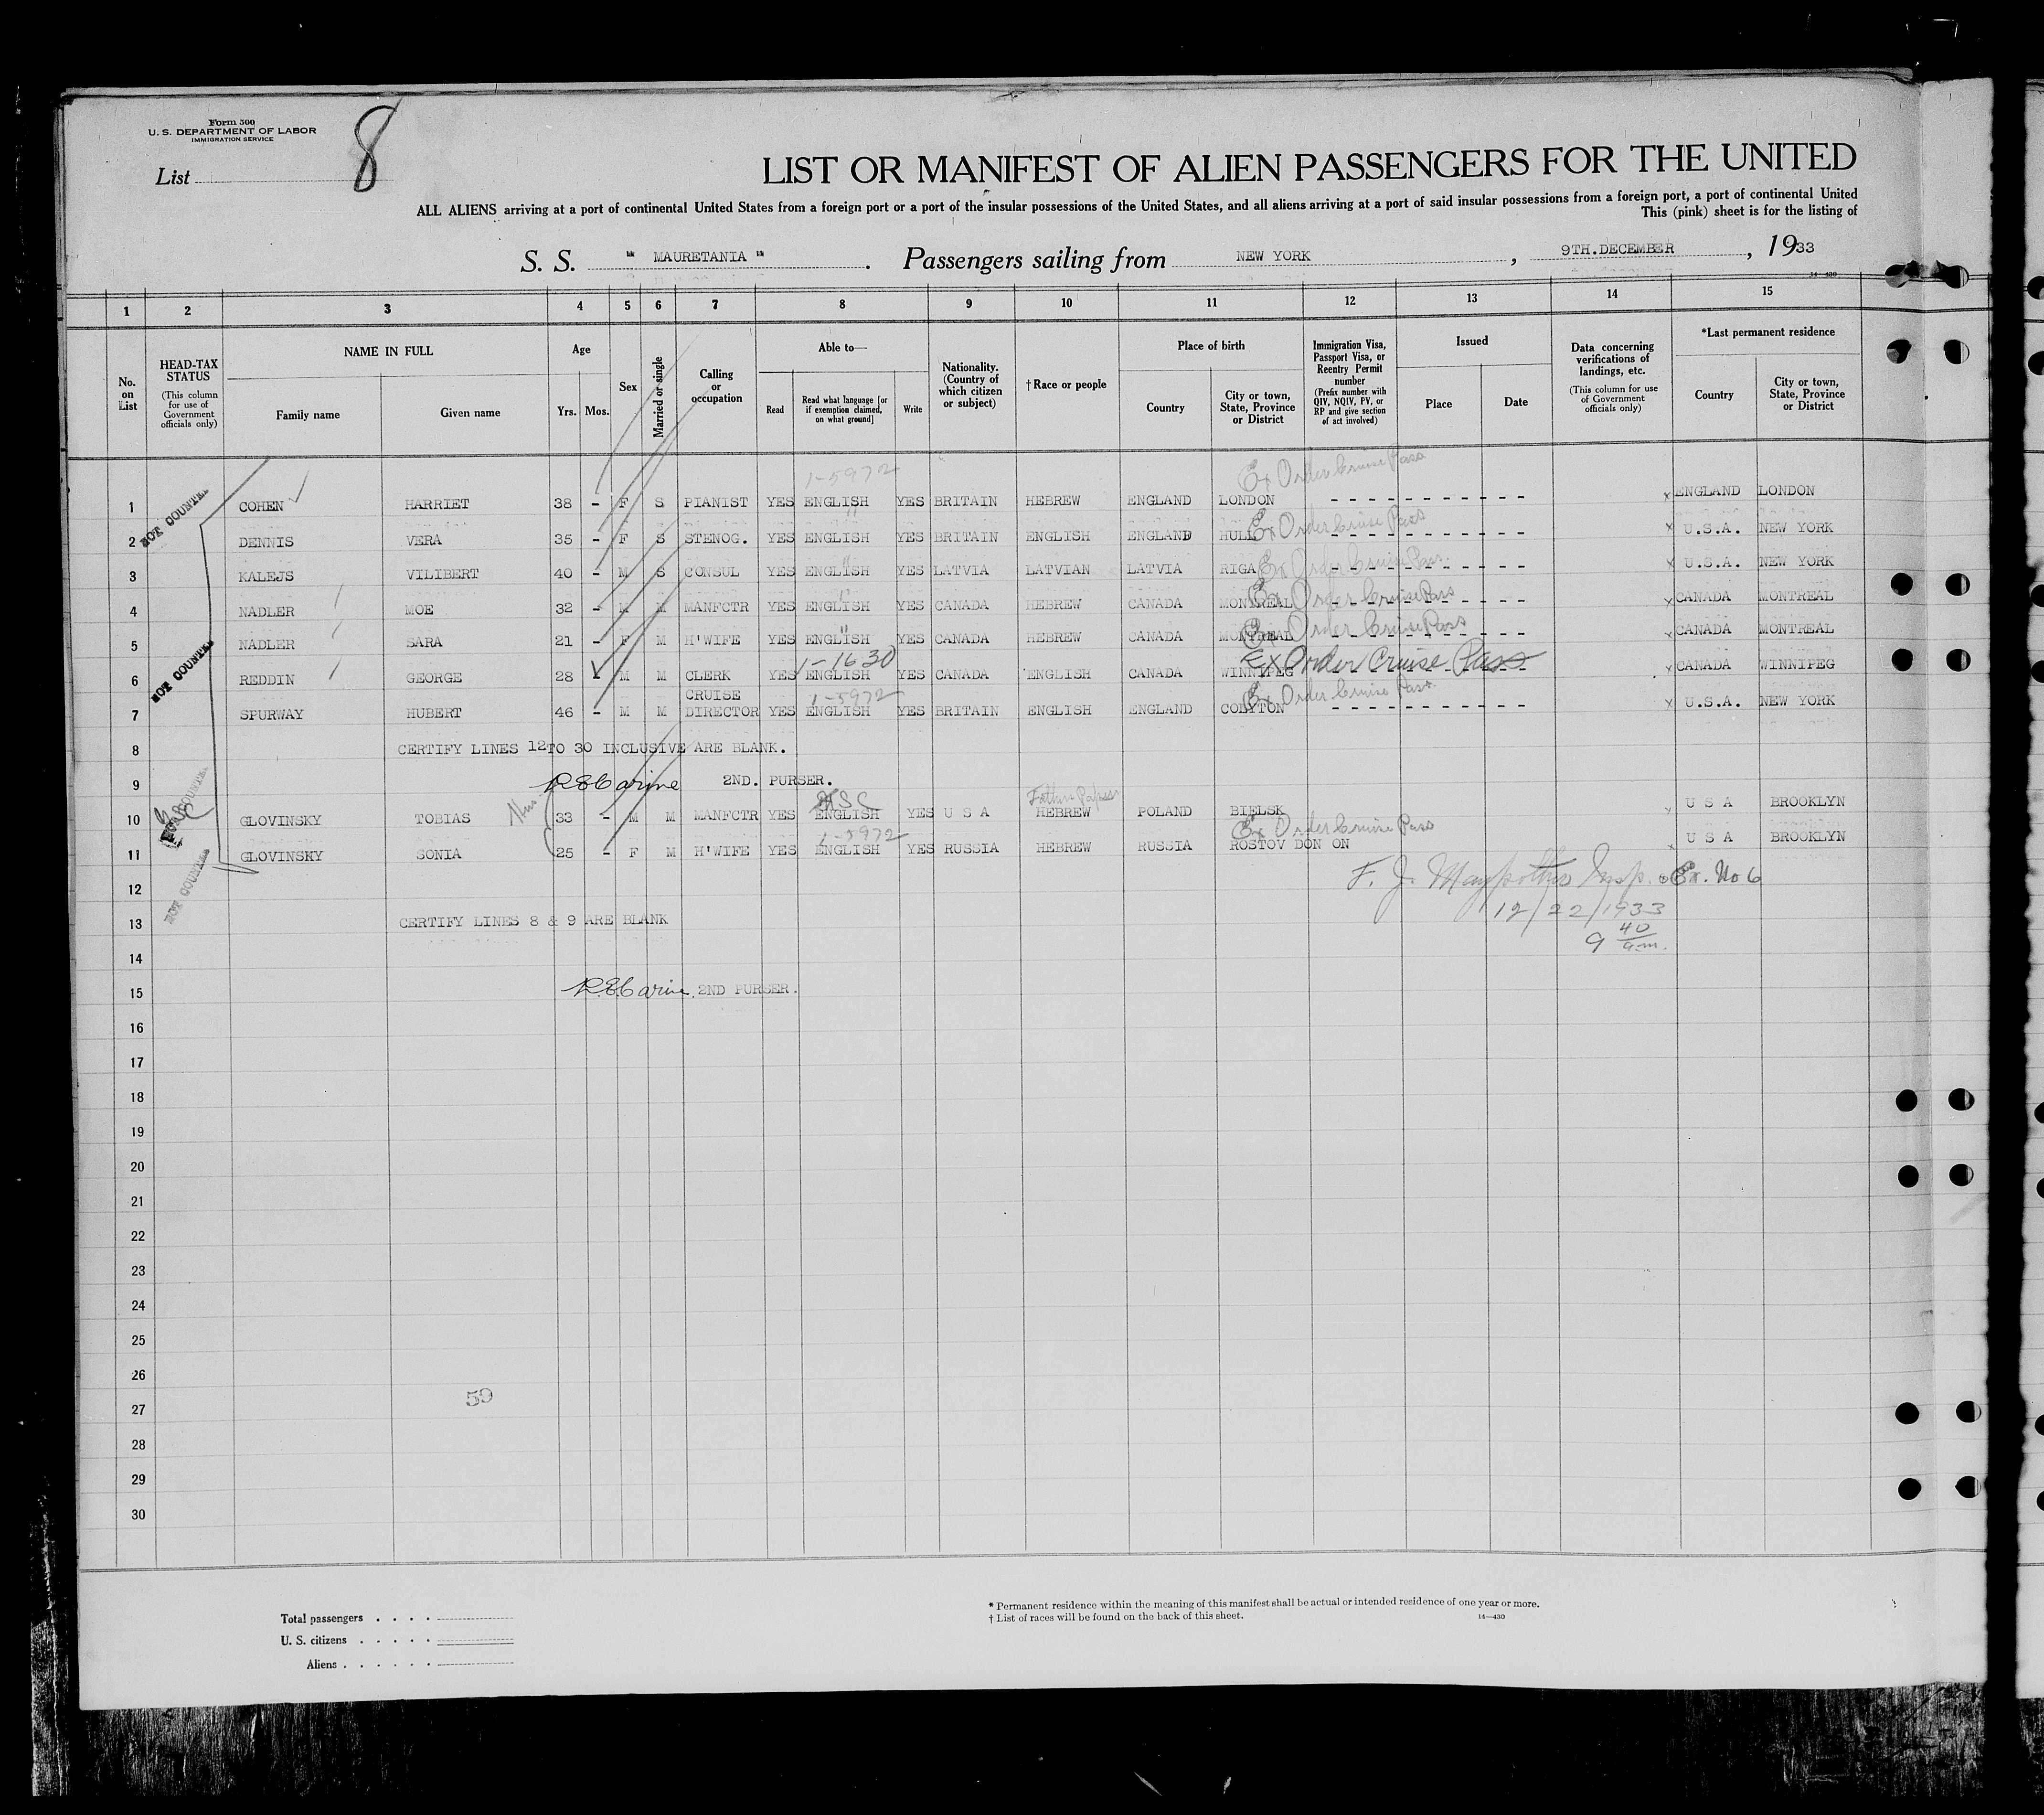 Form 500
U. S. DEPARTMENT OF LABOR
IMMIGRATION SERVICE
List 8
LIST OR MANIFEST OF ALIEN PASSENGERS FOR THE UNITED
ALL ALIENS arriving at a port of continental United States from a foreign port or a port of the insular possessions of the United States, and all aliens arriving at a port of said insular possessions from a foreign port, a port of continental United
This (pink) sheet is for the listing of
S. S. " MAURETANIA ". Passengers sailing from NEW YORK, 9TH.DECEMBER, 1933
14—430
1 2 3 4 5 6 7 8 9 10 11 12 13 14 15
No. on List
HEAD-TAX STATUS (This column for use of Government officials only)
NAME IN FULL
Family name
Given name
Age
Yrs. Mos.
Sex
Married or single
Calling or occupation
Able to—
Read
Read what language [or if exemption claimed, on what ground]
Write
Nationality. (Country of which citizen or subject)
†Race or people
Place of birth
Country
City or town, State, Province or District
Immigration Visa, Passport Visa, or Reentry Permit number (Prefix number with QIV, NQIV, PV, or RP and give section of act involved)
Issued
Place
Date
Data concerning verifications of landings, etc. (This column for use of Government officials only)
*Last permanent residence
Country
City or town, State, Province or District
1-5972 Ex Order Cruise Pass
1 NOT COUNTED COHEN HARRIET 38 - F S PIANIST YES ENGLISH YES BRITAIN HEBREW ENGLAND LONDON - - - - - - - - - - - - - x ENGLAND LONDON
" Ex Order Cruise Pass
2 DENNIS VERA 35 - F S STENOG. YES ENGLISH YES BRITAIN ENGLISH ENGLAND HULL - - - - - - - - - - - - - x U.S.A. NEW YORK
" Ex Order Cruise Pass.
3 KALEJS VILIBERT 40 - M S CONSUL YES ENGLISH YES LATVIA LATVIAN LATVIA RIGA - - - - - - - - - - - - - x U.S.A. NEW YORK
" Ex Order Cruise Pass
4 NADLER MOE 32 - M M MANFCTR YES ENGLISH YES CANADA HEBREW CANADA MONTREAL - - - - - - - - - - - - - x CANADA MONTREAL
" Ex Order Cruise Pass
5 NADLER SARA 21 - F M H'WIFE YES ENGLISH YES CANADA HEBREW CANADA MONTREAL - - - - - - - - - - - - - x CANADA MONTREAL
1-1630 Ex Order Cruise Pass
6 NOT COUNTED REDDIN GEORGE 28 M M CLERK YES ENGLISH YES CANADA ENGLISH CANADA WINNIPEG - - - - - - - - - - - - - x CANADA WINNIPEG
CRUISE 1-5972 Ex Order Cruise Pass.
7 SPURWAY HUBERT 46 - M M DIRECTOR YES ENGLISH YES BRITAIN ENGLISH ENGLAND COLYTON - - - - - - - - - - - - - x U.S.A. NEW YORK
8 CERTIFY LINES 12TO 30 INCLUSIVE ARE BLANK.
9 2ND. PURSER.
10 GLOVINSKY TOBIAS 33 - M M MANFCTR YES ENGLISH YES U S A HEBREW POLAND BIELSK U S A BROOKLYN
Fathers Papers
1-5972 Ex Order Cruise Pass
11 GLOVINSKY SONIA 25 - F M H'WIFE YES ENGLISH YES RUSSIA HEBREW RUSSIA ROSTOV DON ON x U S A BROOKLYN
NOT COUNTED
12 F. J. Insp. Ex. No 6
12/22/1933
13 CERTIFY LINES 8 & 9 ARE BLANK
9 40 a.m.
14
15 2ND PURSER.
16
17
18
19
20
21
22
23
24
25
26
59
27
28
29
30
Total passengers
U. S. citizens
Aliens
* Permanent residence within the meaning of this manifest shall be actual or intended residence of one year or more.
† List of races will be found on the back of this sheet.
14—430